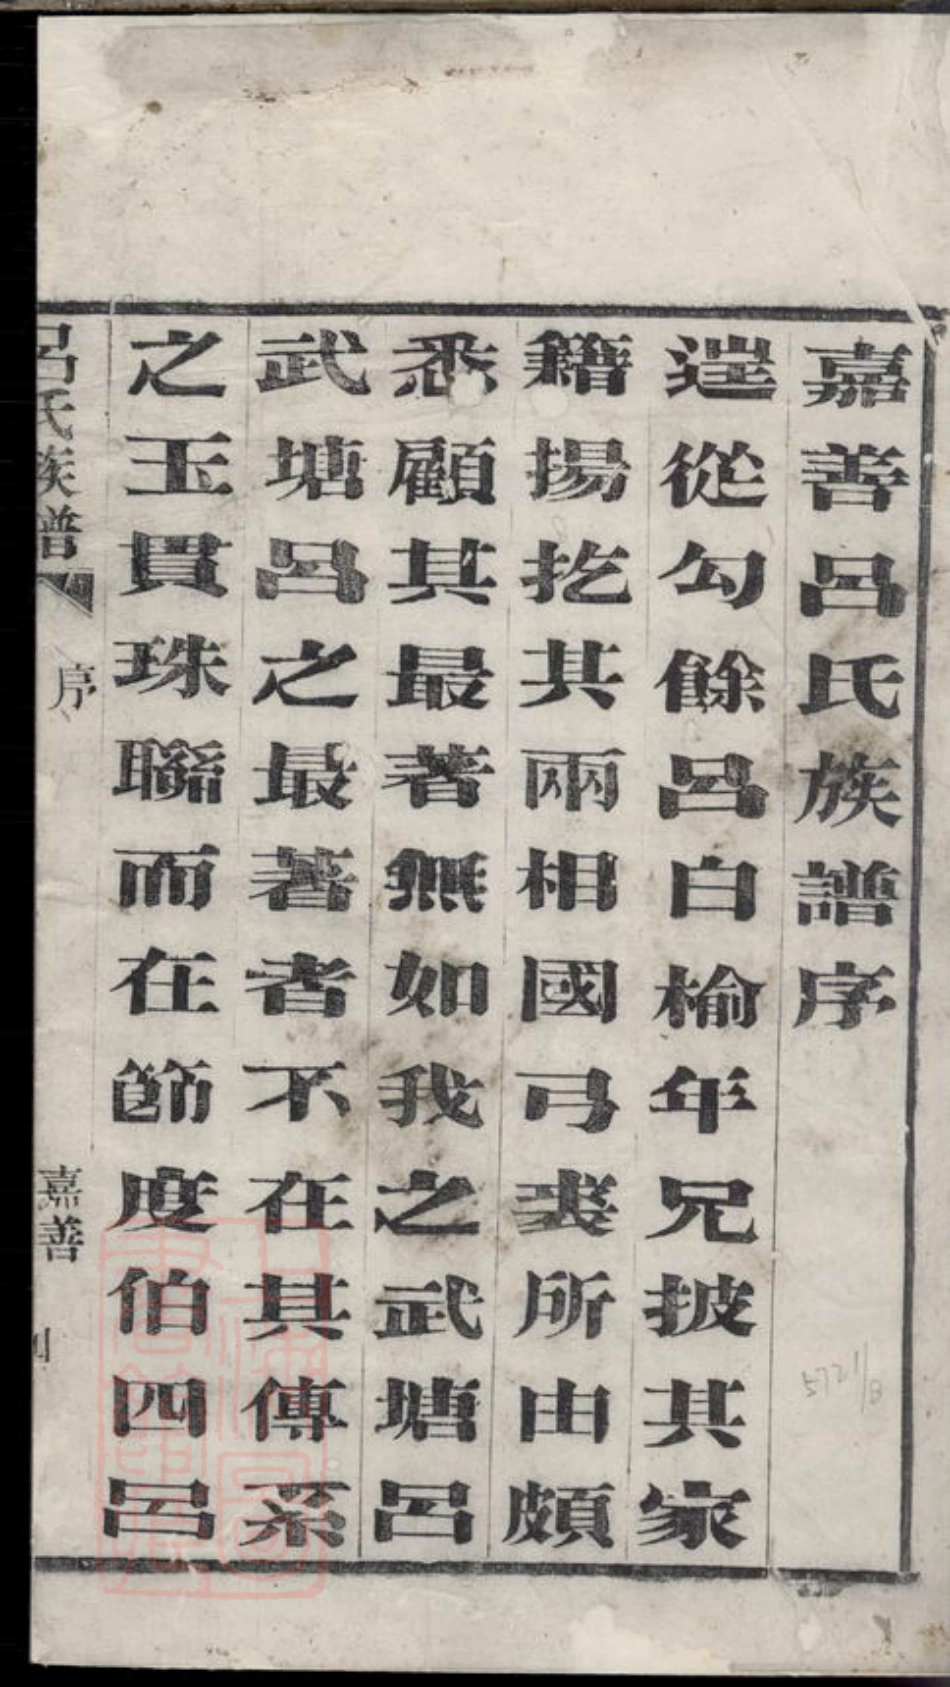 嘉善呂氏族譜序
從勾餘呂白榆年兄披其家
籍揚扢其兩相國弓裘所由頗
悉顧其最著無如我之武塘呂
武塘呂之最著者不在其傳系
之玉貫珠聯而在節度伯四呂
呂氏族譜
序
嘉善
5721/8